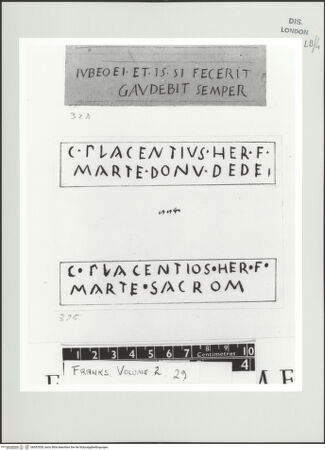 DIS.
LONDON
IVBEO EI · ET · IS · SI FECERIT
GAVDEBIT SEMPER
C · PLACENTIVS · HER · F ·
MARTE · DONV · DEDE
C • PLACENTIOS • HER • F •
MARTE • SACROM
1 2 3 4 5 6 7 8 9 10
Centimetres
4
FRANKS VOLUME 2 29